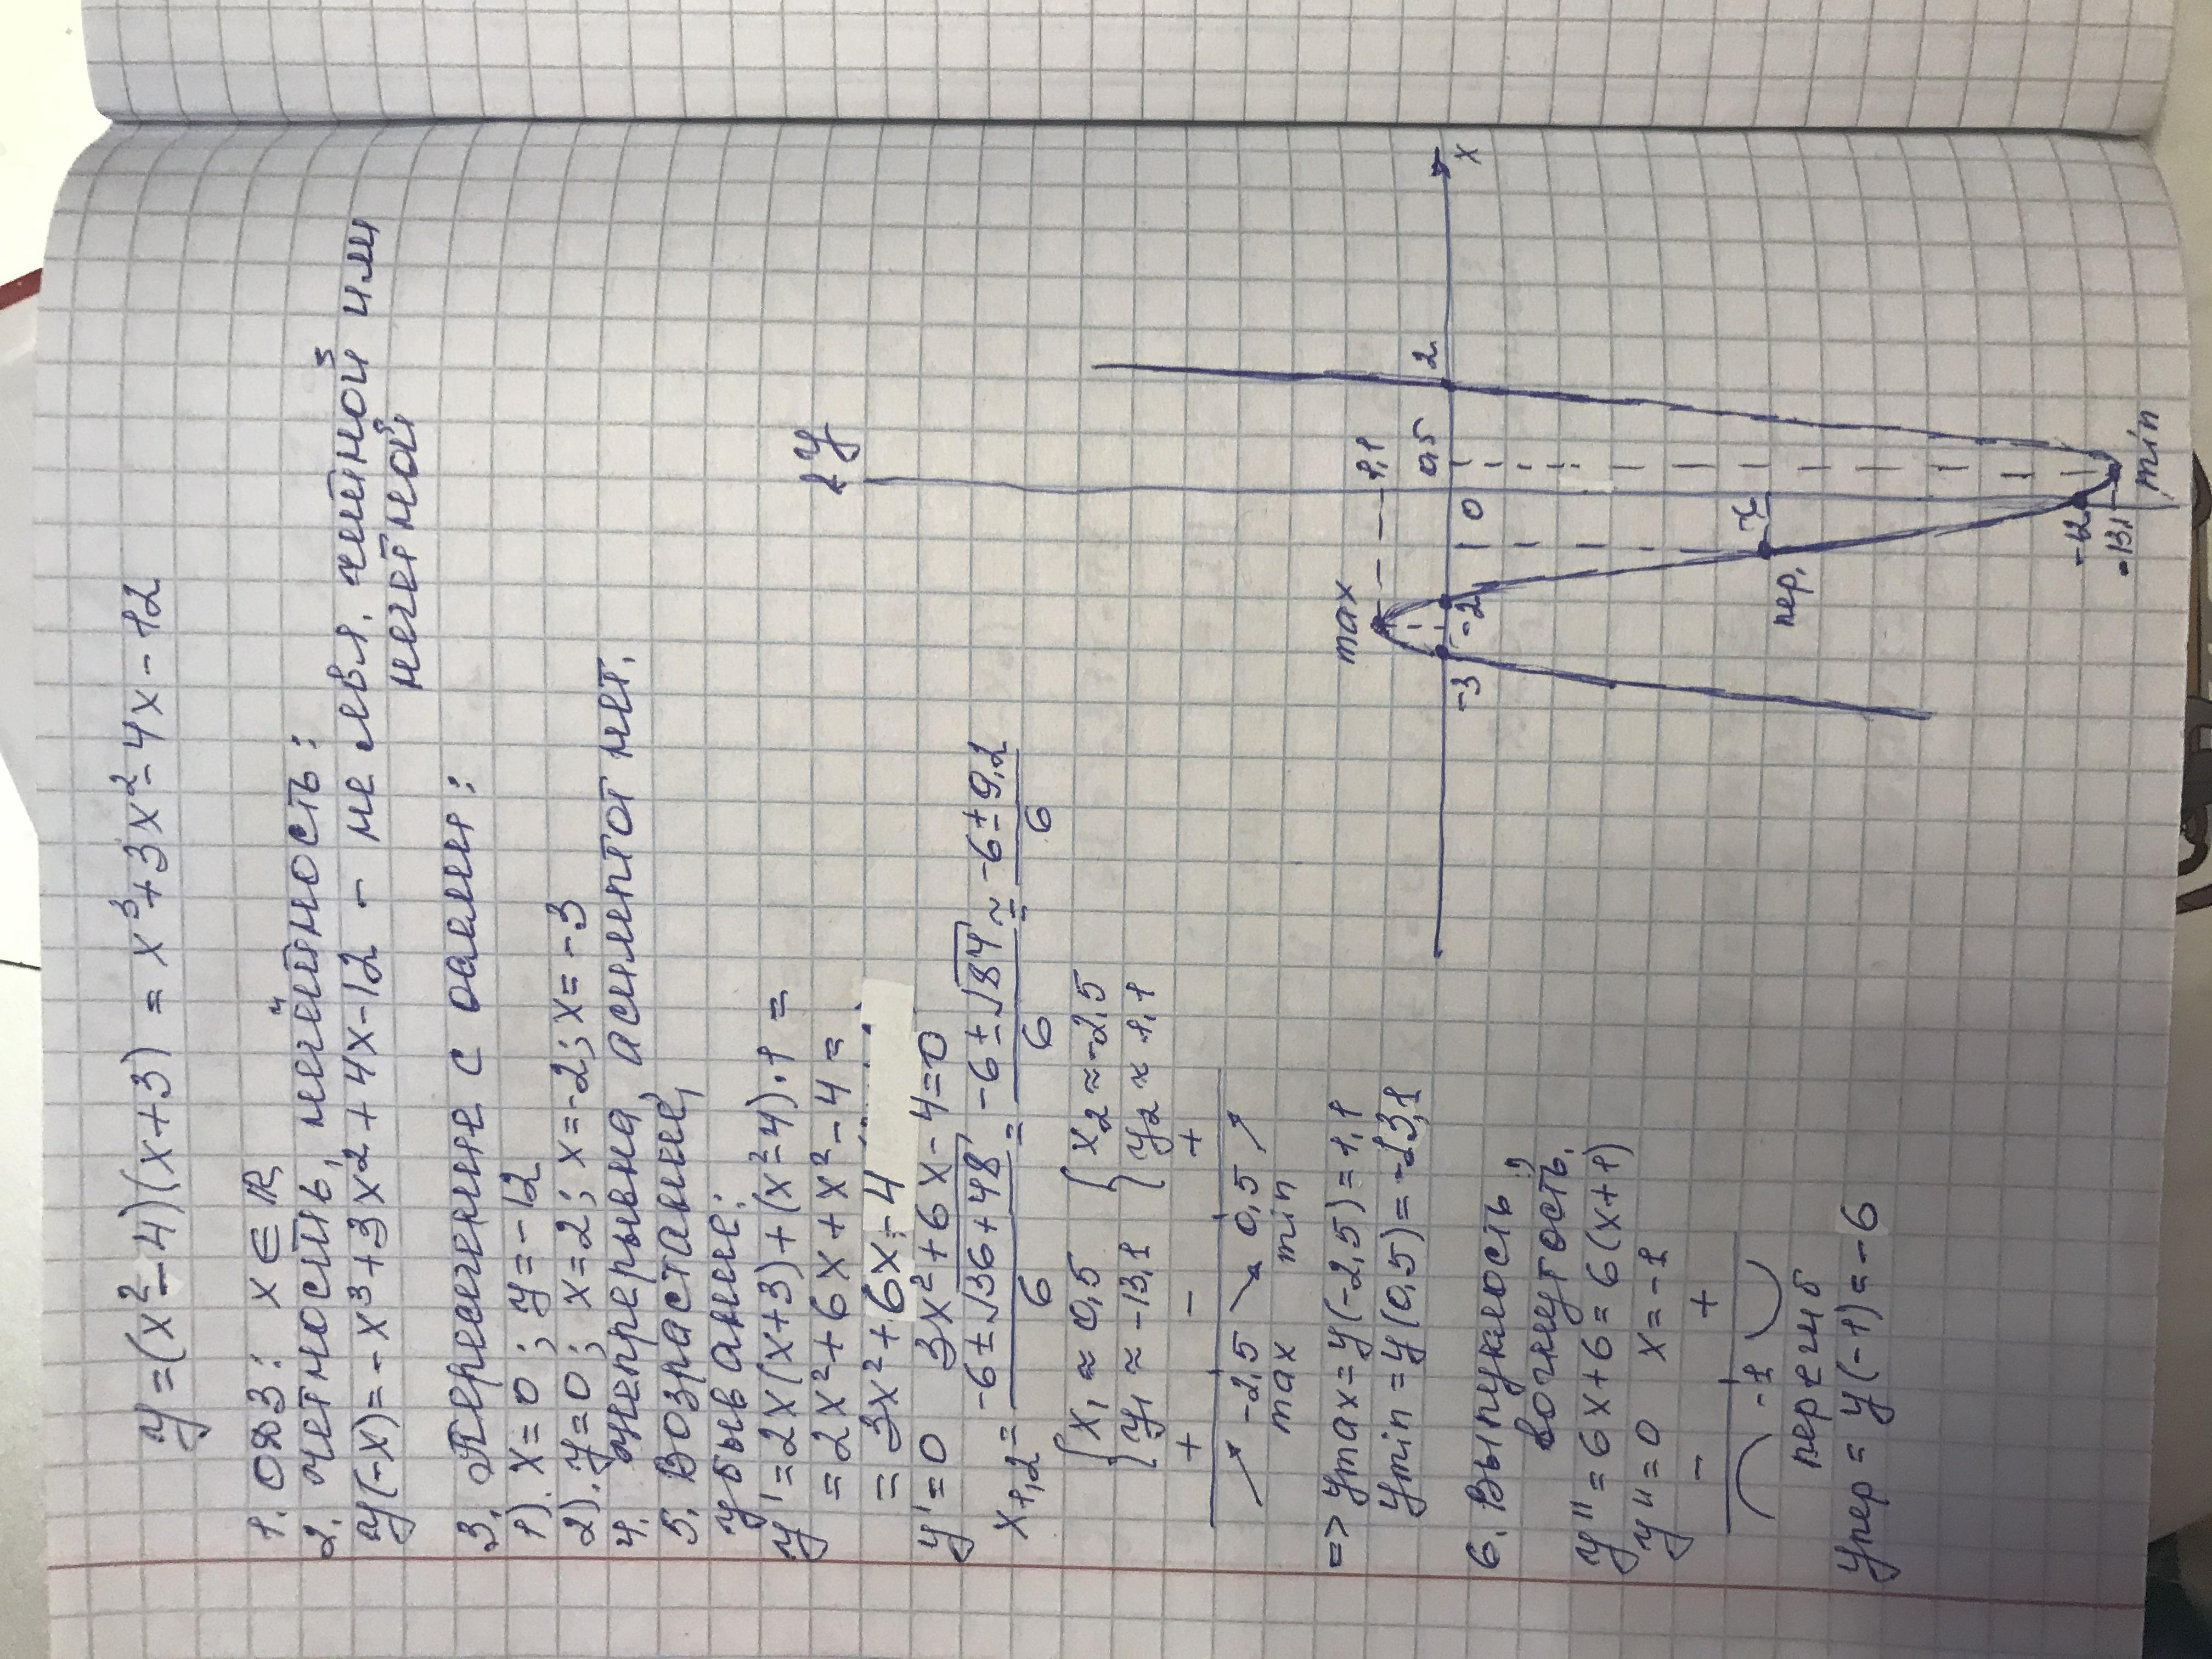 y=(x²-4)(x+3) = x³+3x²-4x-12
1. ОДЗ: x ∈ ℝ
2. четность, нечётность:
y(-x)=-x³+3x²+4x-12 - не явл. чётной или
нечётной
3. Пересечение с осями:
1). x=0; y=-12
2). y=0; x=2; x=-2; x=-3
4. Непрерывна, асимптот нет.
5. Возрастание,
убывание:
y'=2x(x+3)+(x²-4)·1=
=2x²+6x+x²-4=
=3x²+6x-4
y'=0 3x²+6x-4=0
x1,2= (-6±√(36+48))/6 = (-6±√84)/6 ≈ (-6±9,2)/6
{x1≈0,5 {x2≈-2,5
{y1≈-13,1 {y2≈1,1
+ - +
-2,5 0,5
max min
=> ymax=y(-2,5)=1,1
ymin=y(0,5)=-13,1
6. Выпуклость,
вогнутость.
y''=6x+6=6(x+1)
y''=0 x=-1
- +
-1
перегиб
yпер=y(-1)=-6
y
max
1,1
-3 -2 0 0,5 2 x
пер.
-12
-13,1
min